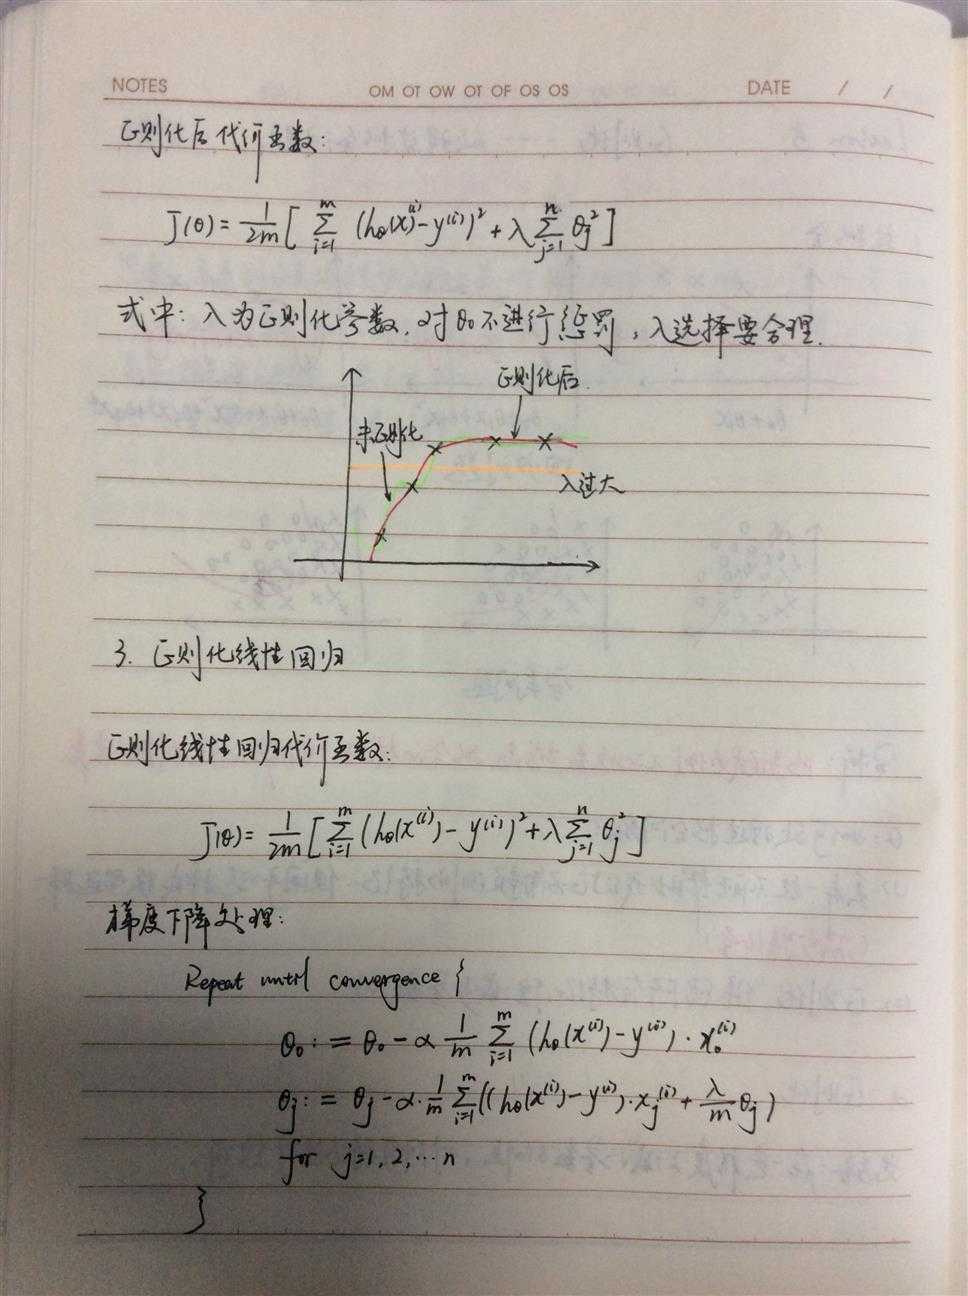 NOTES OM OT OW OT OF OS OS DATE / /
正则化后代价函数:
J(θ) = \frac{1}{2m} [ \sum_{i=1}^{m} (h_θ(x^{(i)}) - y^{(i)})^2 + λ \sum_{j=1}^{n} θ_j^2 ]
式中: λ为正则化参数, 对θ₀不进行惩罚, λ选择要合理.
正则化后
未正则化
λ过大
3. 正则化线性回归
正则化线性回归代价函数:
J(θ) = \frac{1}{2m} [ \sum_{i=1}^{m} (h_θ(x^{(i)}) - y^{(i)})^2 + λ \sum_{j=1}^{n} θ_j^2 ]
梯度下降处理:
Repeat until convergence {
θ₀ := θ₀ - α \frac{1}{m} \sum_{i=1}^{m} (h_θ(x^{(i)}) - y^{(i)}) · x_0^{(i)}
θ_j := θ_j - α · \frac{1}{m} \sum_{i=1}^{m} ((h_θ(x^{(i)}) - y^{(i)}) · x_j^{(i)} + \frac{λ}{m} θ_j)
for j=1, 2, ... n
}